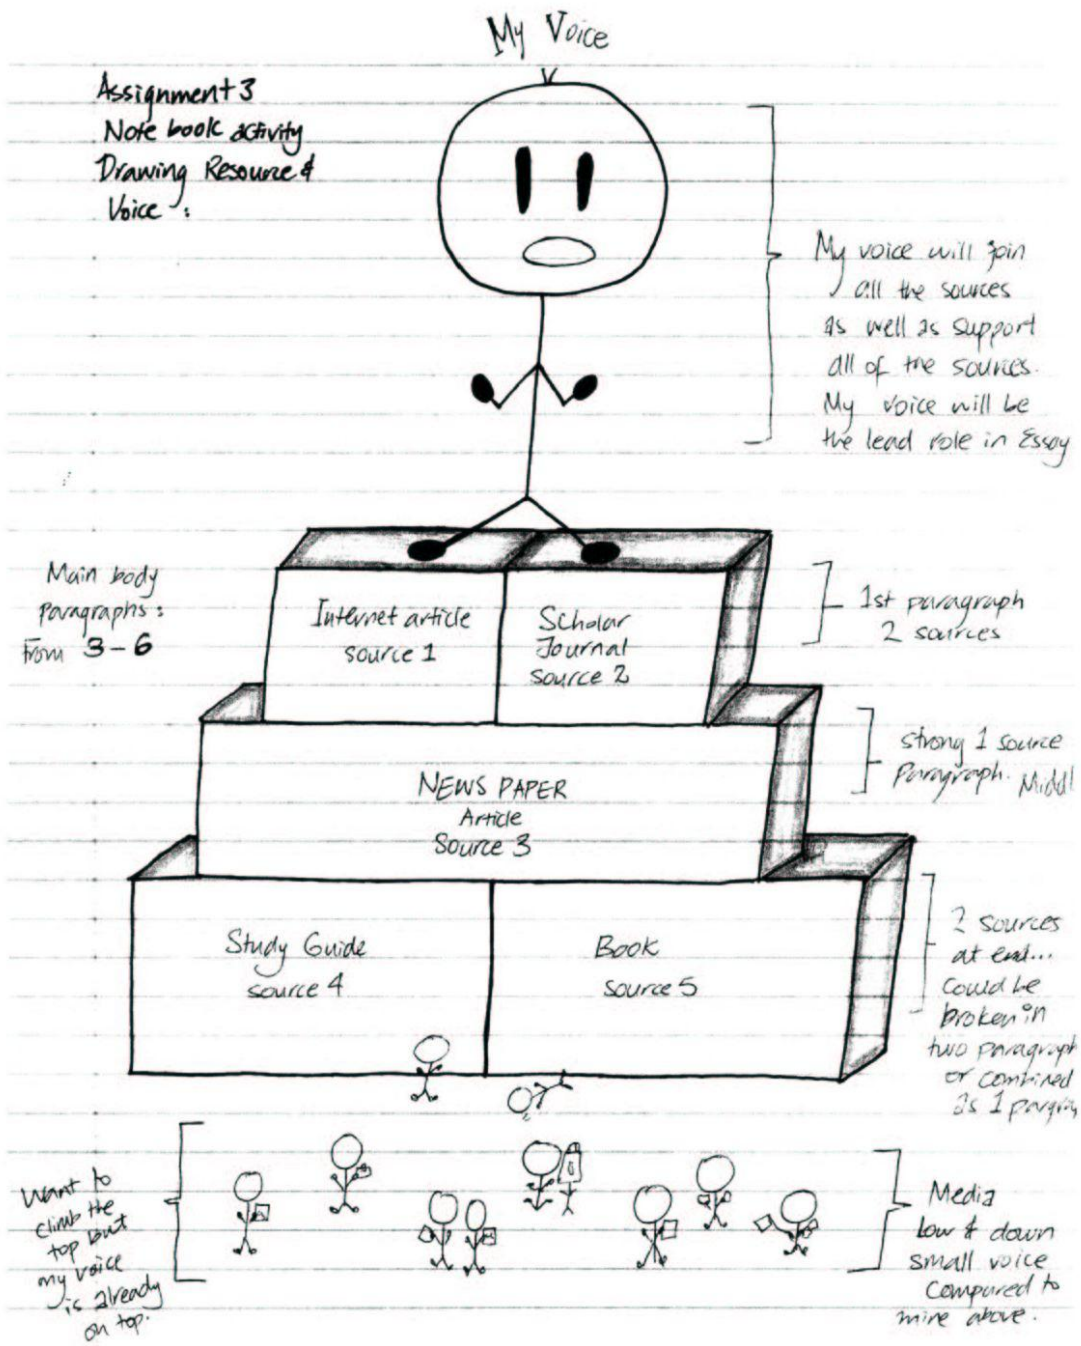 My Voice
Assignment 3
Note book activity
Drawing Resource &
Voice :
My voice will join
all the sources
as well as support
all of the sources.
My voice will be
the lead role in Essay
Main body
paragraphs:
From 3-6
Internet article
source 1
Scholar
Journal
source 2
1st paragraph
2 sources
NEWS PAPER
Article
Source 3
strong 1 source
Paragraph. Middl
Study Guide
source 4
Book
source 5
2 sources
at end...
could be
broken in
two paragraph
or combined
as 1
Want to
climb the
top but
my voice
is already
on top.
Media
low & down
small voice
Compared to
mine above.